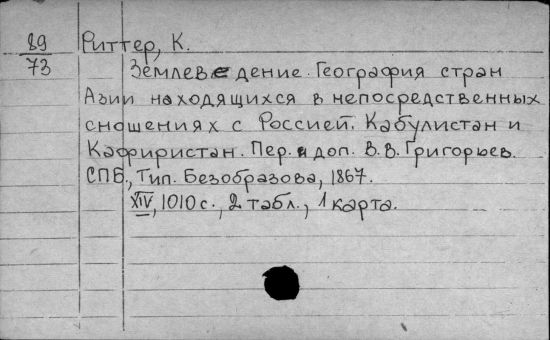 89 Риттер, К.
73 Землеведение. География стран
Азии находящихся в непосредственных
сношениях с Россией. Кабулистан и
Кафиристан. Пер. и доп. В.В. Григорьев.
СПБ., Тип. Безобразова, 1867.
XIV, 1010 с., 2 табл., 1 карта.